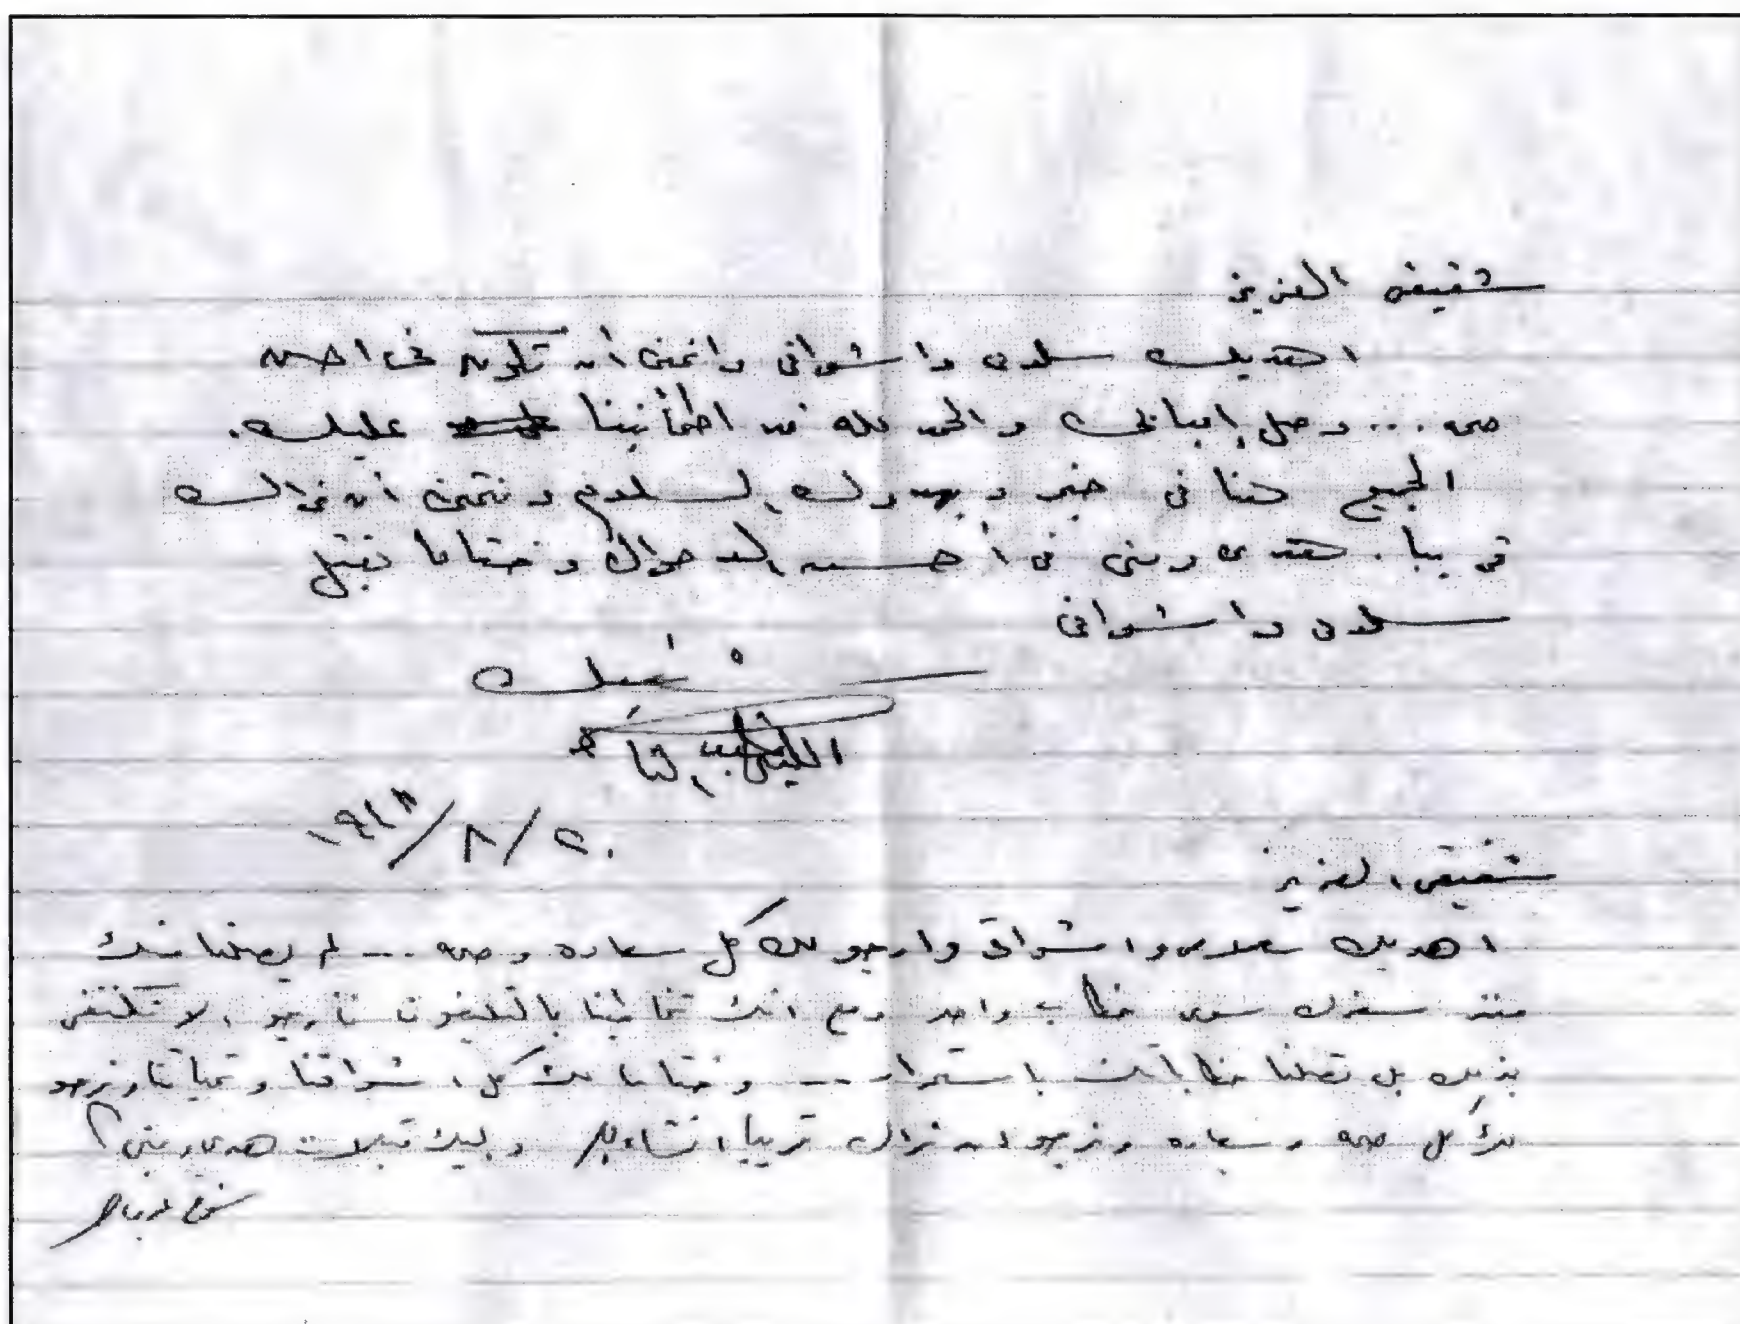 شقيقى العزيز
اهديك سلامى واشواقى واتمنى أن تكون فى احسن
صحه ... وصل إلينا والحمد لله قد اطمأنينا عليك.
الجميع هنا فى خير ويهدونك السلام ونتمنى أن نراك
قريبا. هدى ومنى فى أحسن الاحوال وختاما تقبل
سلامى واشواقى
شقيقك
الليثى
٢٠/٨/١٩٦٨
شقيقى العزيز
اهديك سلامى واشواقى وارجو لك كل سعاده وصحه ... لم يصلنا منك
منذ سفرك سوى خطاب واحد ومع انك تخاطبنا بالتليفون فأرجو الا تكتفى
بذلك بل تصلنا خطاباتك باستمرار ... وختاما لك كل اشواقنا وتحياتنا ونرجو
لك كل صحه وسعاده ونرجو ان نراك قريبا انشاء الله واليك قبلات هدى ومنى